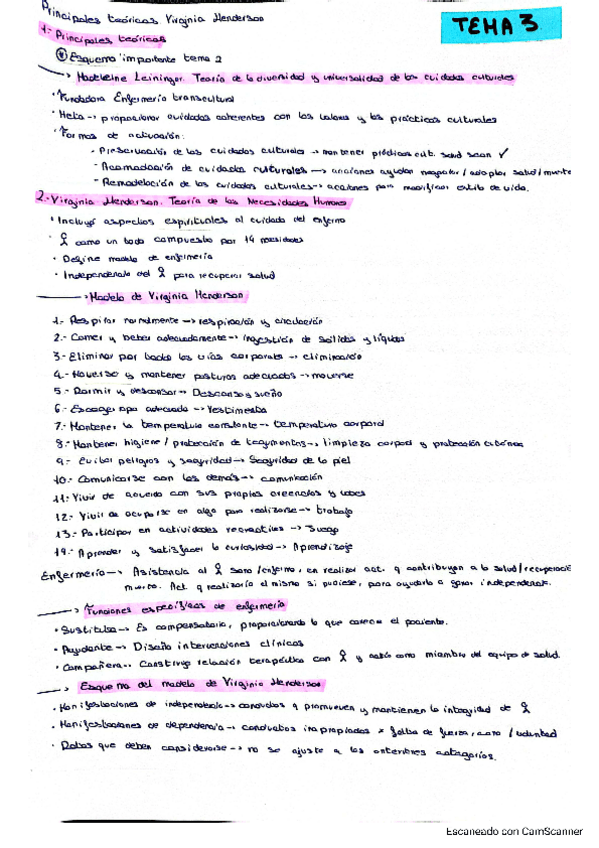 Principales teóricas Virginia Henderson
TEMA 3.
1.- Principales teóricas
* Esquema importante tema 2
→ Madeleine Leininger. Teoría de la diversidad y universalidad de los cuidados culturales
· Fundadora Enfermería transcultural
· Meta → proporcionar cuidados coherentes con los valores y las prácticas culturales
· Formas de actuación:
- Preservación de los cuidados culturales → mantener prácticas cult. salud sean ✓
- Acomodación de cuidados culturales → acciones ayudan negociar / adaptar salud/muerte
- Remodelación de los cuidados culturales → acciones para modificar estilo de vida.
2.- Virginia Henderson. Teoría de las Necesidades Humanas
· Incluyó aspectos espirituales al cuidado del enfermo
· como un todo compuesto por 14 necesidades
· Define modelo de enfermería
· Independencia del para recuperar salud
→ Modelo de Virginia Henderson
1.- Respirar normalmente → respiración y circulación
2.- Comer y beber adecuadamente → ingestión de sólidos y líquidos
3.- Eliminar por todas las vías corporales → eliminación
4.- Moverse y mantener posturas adecuadas → moverse
5.- Dormir y descansar → Descanso y sueño
6.- Escoger ropa adecuada → Vestimenta
7.- Mantener la temperatura constante → temperatura corporal
8.- Mantener higiene / protección de tegumentos → limpieza corporal y protección cutánea
9.- Evitar peligros y seguridad → Seguridad de la piel
10.- Comunicarse con los demás → comunicación
11.- Vivir de acuerdo con sus propias creencias y valores
12.- Vivir de ocuparse en algo para realizarse → trabajo
13.- Participar en actividades recreativas → Juego
14.- Aprender y satisfacer la curiosidad → Aprendizaje
Enfermería → Asistencia al sano/enfermo, en realizar act. q contribuyan a la salud/recuperación
muerte. Act. q realizaría el mismo si pudiese, para ayudarlo a ganar independencia.
→ Funciones específicas de enfermería
· Sustituta → Es compensatoria, proporcionando lo que carece el paciente.
· Ayudante → Diseña intervenciones clínicas
· Compañera → Construye relación terapéutica con y actúa como miembro del equipo de salud.
→ Esquema del modelo de Virginia Henderson
· Manifestaciones de independencia → conductas q promueven y mantienen la integridad de
· Manifestaciones de dependencia → conductas inapropiadas x falta de fuerza, cono / voluntad
· Datos que deben considerarse → no se ajuste a las anteriores categorías.
Escaneado con CamScanner